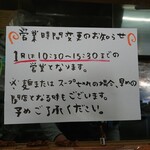 営業時間変更のお知らせ
1月は10:30~15:30までの
営業となります。
※麺またはスープきれの場合、早めの
閉店となる時もございます。
予めご了承ください。